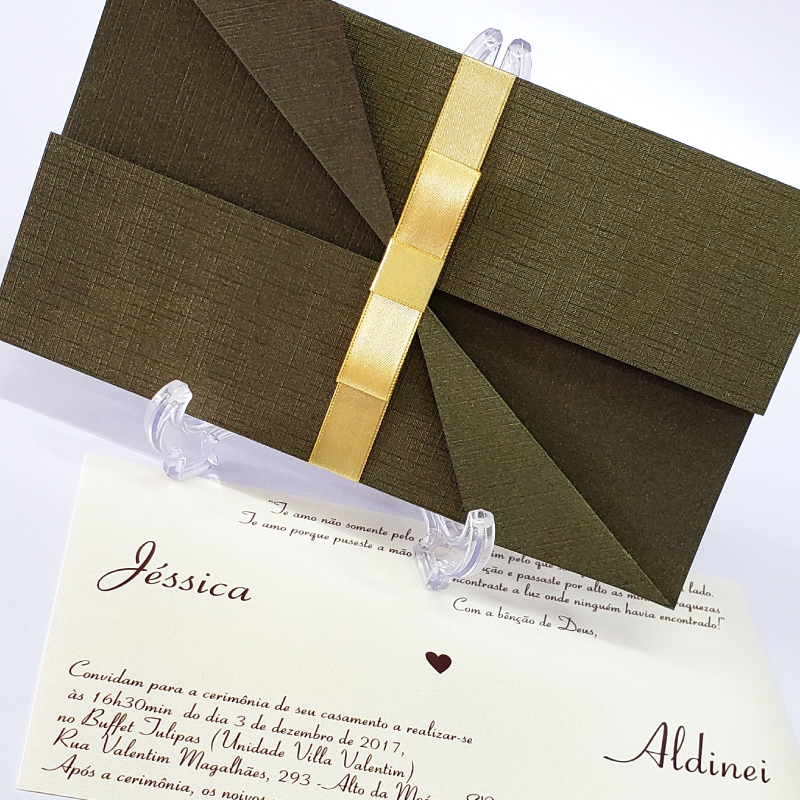 "Te amo não somente pelo
im pelo que
Te amo porque puseste a mão
ção e passaste por alto as
lado.
encontraste a luz onde ninguém havia encontrado!"
Com a bênção de Deus,
Jéssica
Aldinei
Convidam para a cerimônia de seu casamento a realizar-se
às 16h30min do dia 3 de dezembro de 2017,
no Buffet Tulipas (Unidade Villa Valentim)
Rua Valentim Magalhães, 293 -Alto da
Após a cerimônia, os noivos